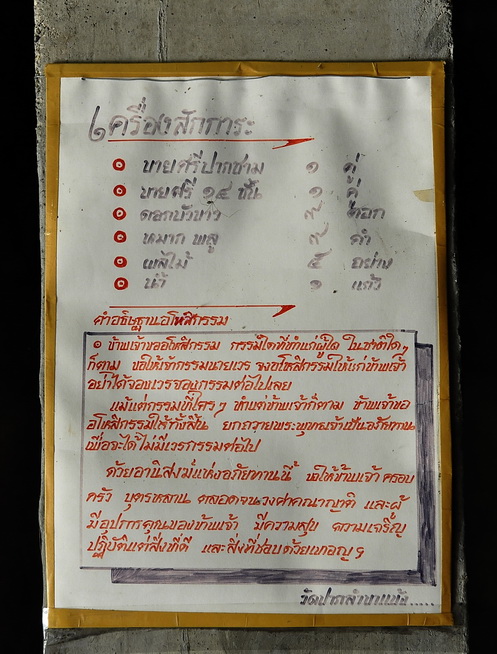 เครื่องสักการะ
บายศรีปากชาม ๑ คู่
บายศรี ๑๔ ชั้น ๑ คู่
ดอกบัวขาว ๗ ดอก
หมาก พลู ๗ คำ
ผลไม้ ๕ อย่าง
น้ำ ๑ แก้ว
คำอธิษฐานอโหสิกรรม
๑ ข้าพเจ้าขออโหสิกรรม กรรมใดที่ทำแก่ผู้ใด ในชาติใดๆ
ก็ตาม ขอให้เจ้ากรรมนายเวร จงอโหสิกรรมให้แก่ข้าพเจ้า
อย่าได้จองเวรจองกรรมต่อไปเลย
แม้แต่กรรมที่ใครๆ ทำแก่ข้าพเจ้าก็ตาม ข้าพเจ้าขอ
อโหสิกรรมให้ทั้งสิ้น ยกถวายพระพุทธเจ้าเป็นอภัยทาน
เพื่อจะได้ไม่มีเวรกรรมต่อไป
ด้วยอานิสงม์แห่งอภัยทานนี้ ขอให้ข้าพเจ้า ครอบ
ครัว บุตรหลาน ตลอดจนวงศาคณาญาติ และผู้
มีอุปการคุณของข้าพเจ้า มีความสุข ความเจริญ
ปฏิบัติแต่สิ่งที่ดี และสิ่งที่ชอบด้วยเทอญฯ
วัดปากลำขาแข้ง.....